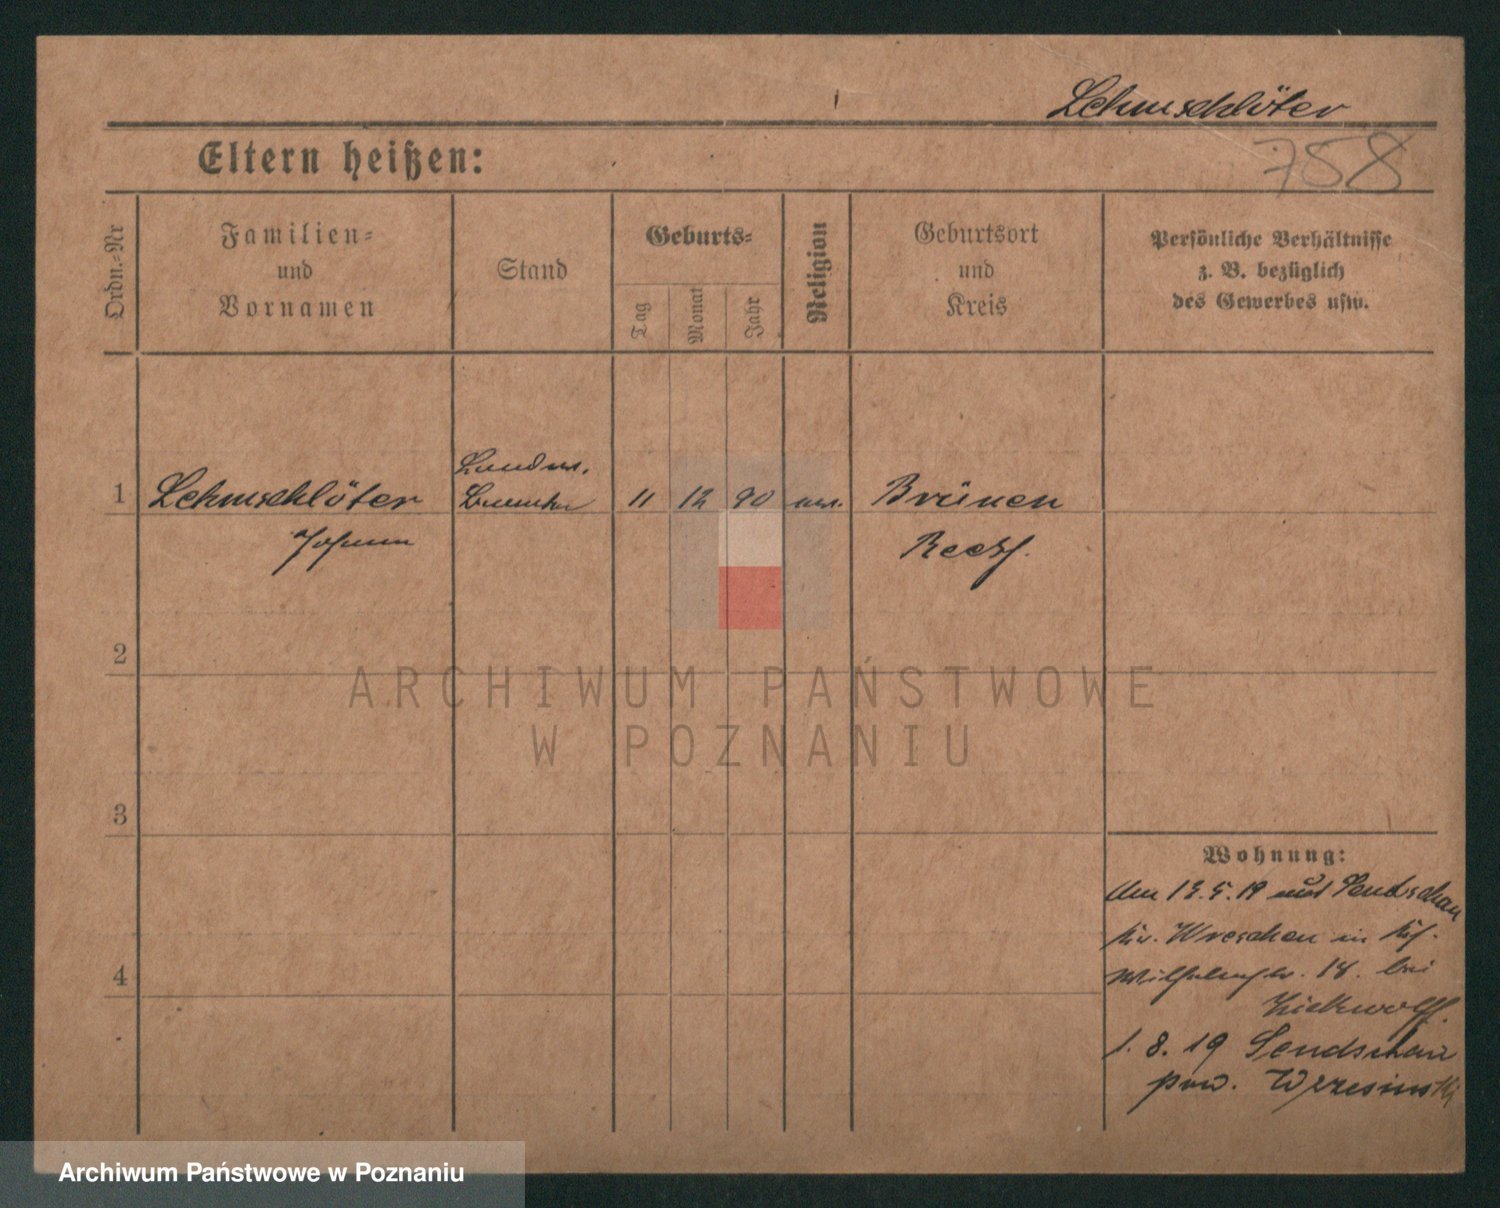 Lehmschlöter
758
Eltern heißen:
Ordn.-Nr
Familien-
und
Vornamen
Stand
Geburts-
Tag
Monat
Jahr
Religion
Geburtsort
und
Kreis
Persönliche Verhältnisse
z. B. bezüglich
des Gewerbes usw.
Landw.
1 Lehmschlöter Beamter 11 12 90 Brünen
Johann Rees
2
ARCHIWUM PAŃSTWOWE
W POZNANIU
3
Wohnung:
Am 13.5.19 aus Sendschau
Kr. Wreschen in
Wilhelmstr. 18. bei
4
1. 8. 19 Sendschau
pow. Wrzesinski
Archiwum Państwowe w Poznaniu